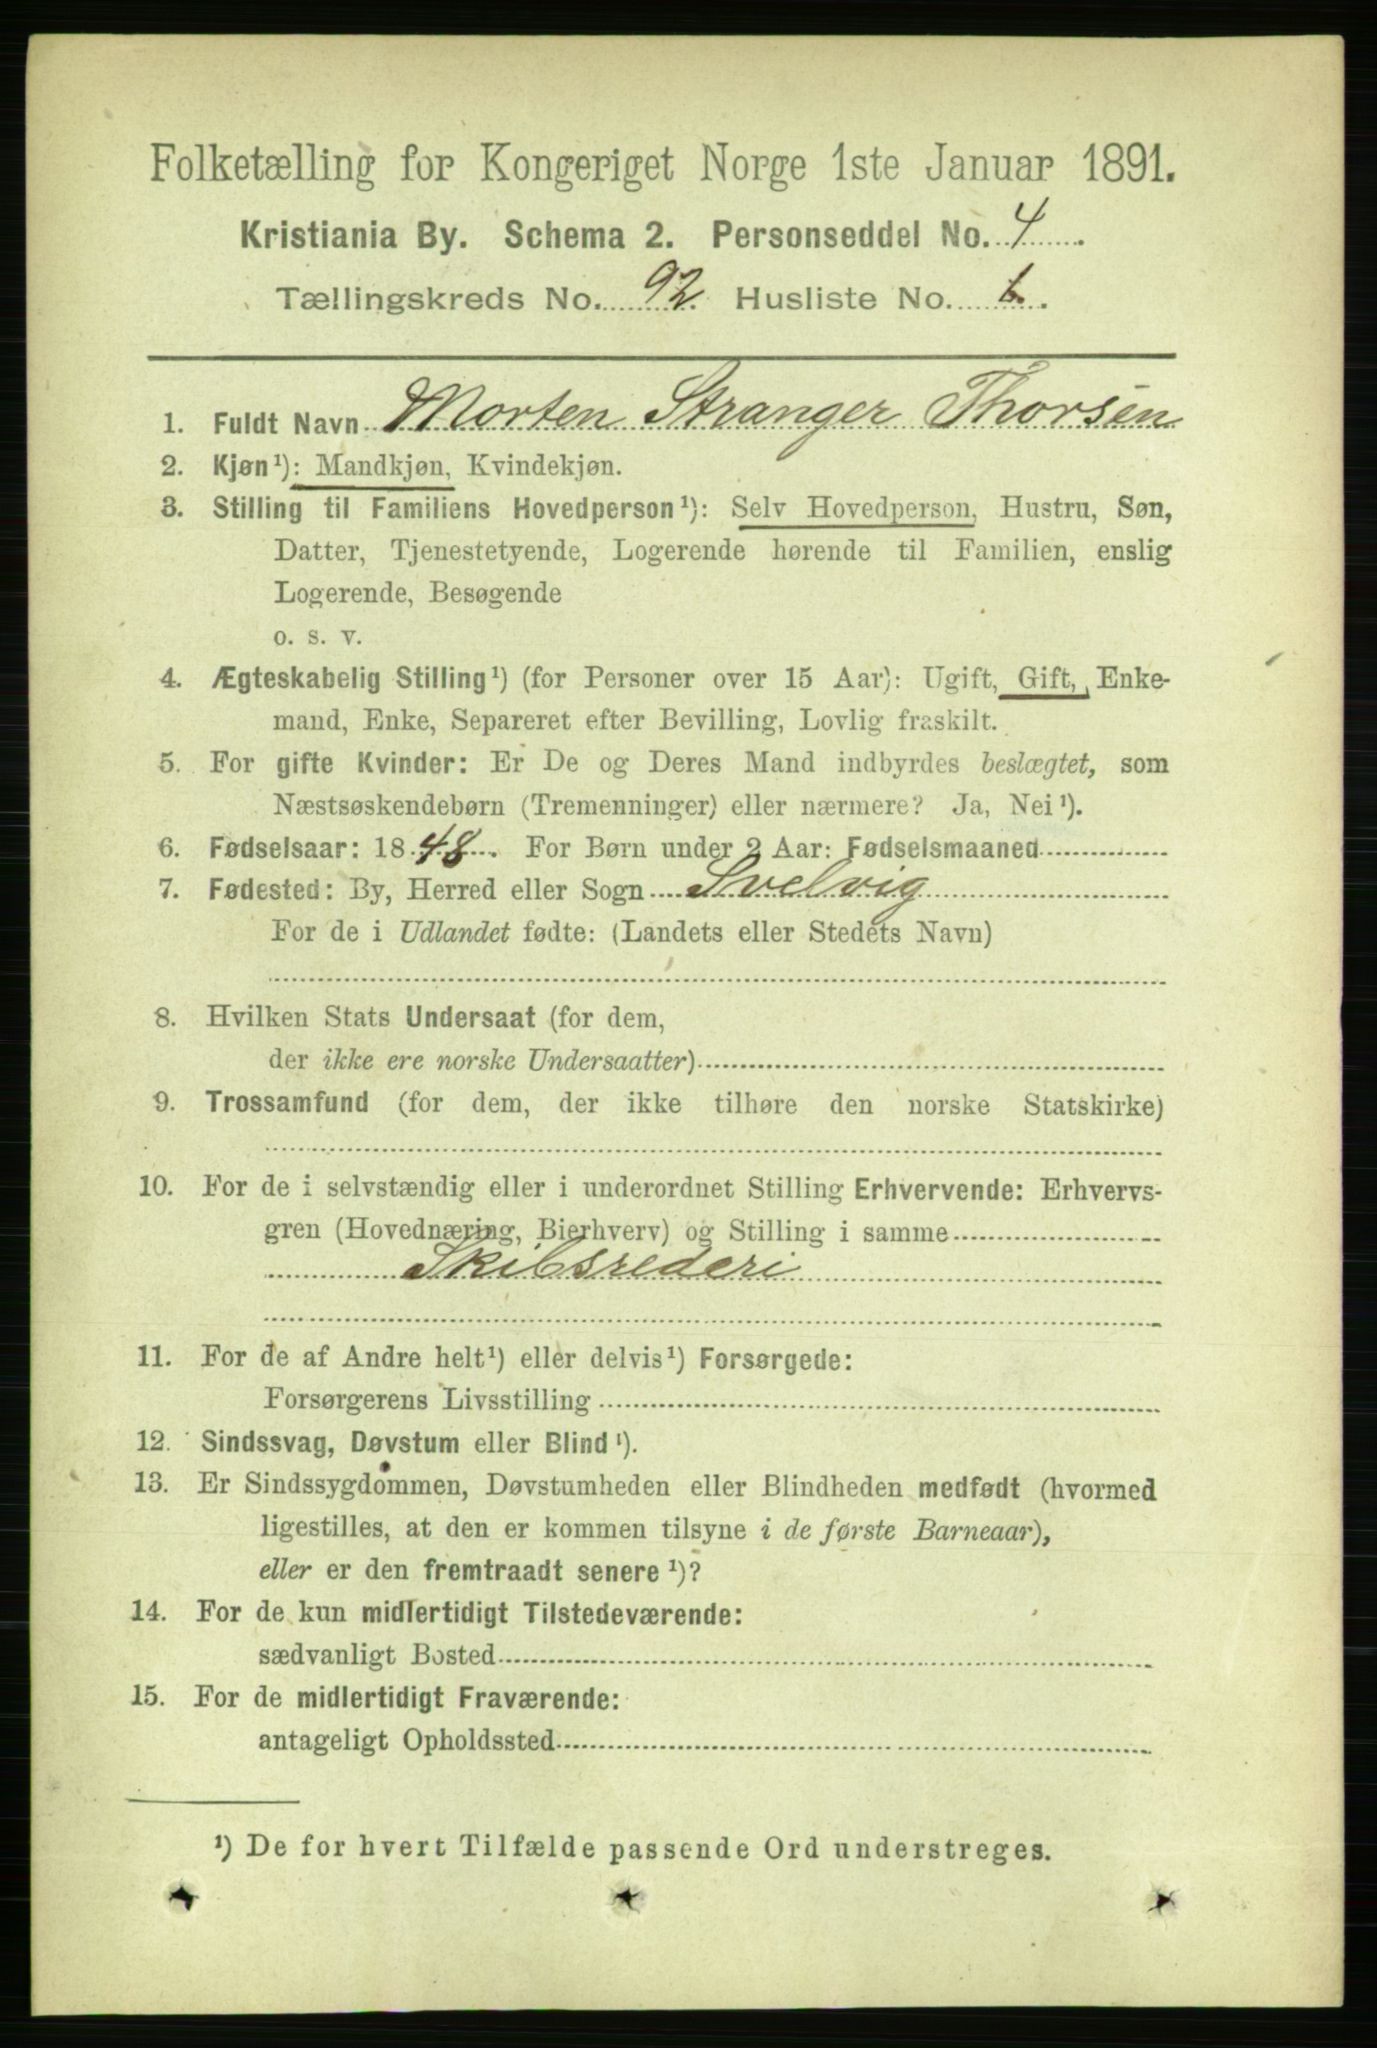 Folketælling for Kongeriget Norge 1ste Januar 1891.
Kristiania By. Schema 2. Personseddel No. 4
Tællingskreds No. 92 Husliste No. 6.
1. Fuldt Navn Morten Stranger Thorsen
2. Kjøn¹): Mandkjøn, Kvindekjøn.
3. Stilling til Familiens Hovedperson¹): Selv Hovedperson, Hustru, Søn,
Datter, Tjenestetyende, Logerende hørende til Familien, enslig
Logerende, Besøgende
o. s. v.
4. Ægteskabelig Stilling¹) (for Personer over 15 Aar): Ugift, Gift, Enke-
mand, Enke, Separeret efter Bevilling, Lovlig fraskilt.
5. For gifte Kvinder: Er De og Deres Mand indbyrdes beslægtet, som
Næstsøskendebørn (Tremenninger) eller nærmere? Ja, Nei¹).
6. Fødselsaar: 1848. For Børn under 2 Aar: Fødselsmaaned
7. Fødested: By, Herred eller Sogn Svelvig
For de i Udlandet fødte: (Landets eller Stedets Navn)
8. Hvilken Stats Undersaat (for dem,
der ikke ere norske Undersaatter)
9. Trossamfund (for dem, der ikke tilhøre den norske Statskirke)
10. For de i selvstændig eller i underordnet Stilling Erhvervende: Erhvervs-
gren (Hovednæring, Bierhverv) og Stilling i samme
Skibsrederi
11. For de af Andre helt¹) eller delvis¹) Forsørgede:
Forsørgerens Livsstilling
12. Sindssvag, Døvstum eller Blind¹).
13. Er Sindssygdommen, Døvstumheden eller Blindheden medfødt (hvormed
ligestilles, at den er kommen tilsyne i de første Barneaar),
eller er den fremtraadt senere¹)?
14. For de kun midlertidigt Tilstedeværende:
sædvanligt Bosted
15. For de midlertidigt Fraværende:
antageligt Opholdssted
¹) De for hvert Tilfælde passende Ord understreges.